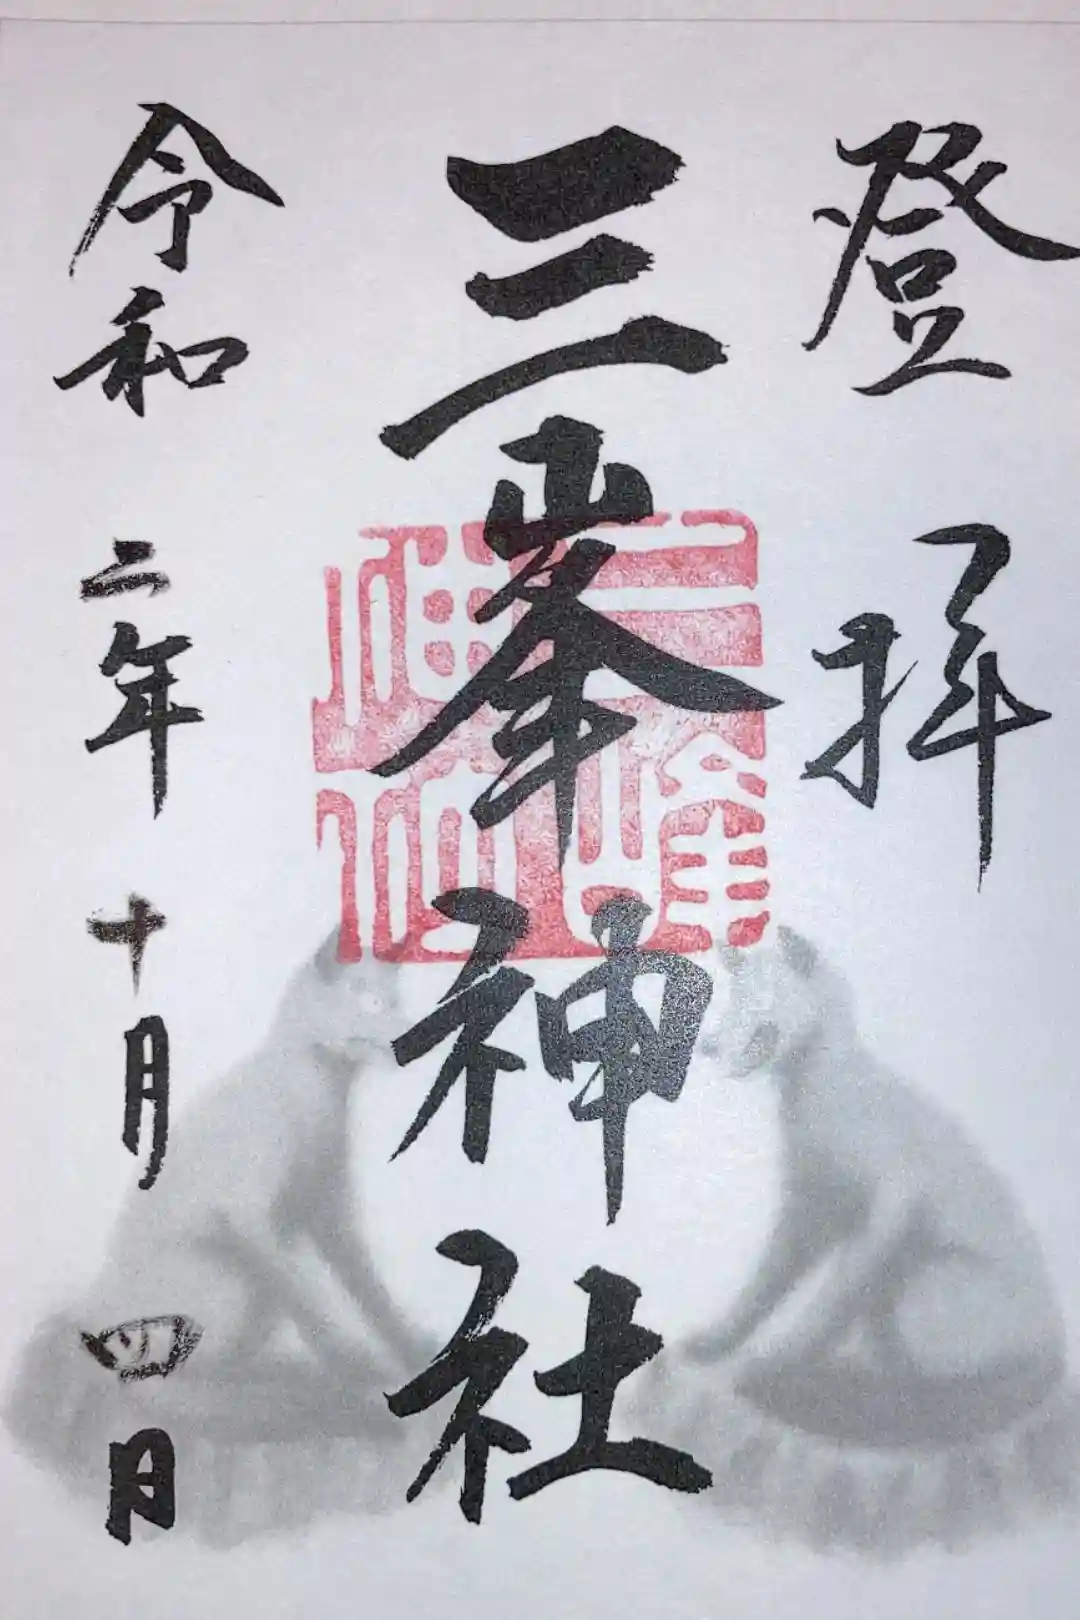 登拝
三峯神社
令和二年十月四日